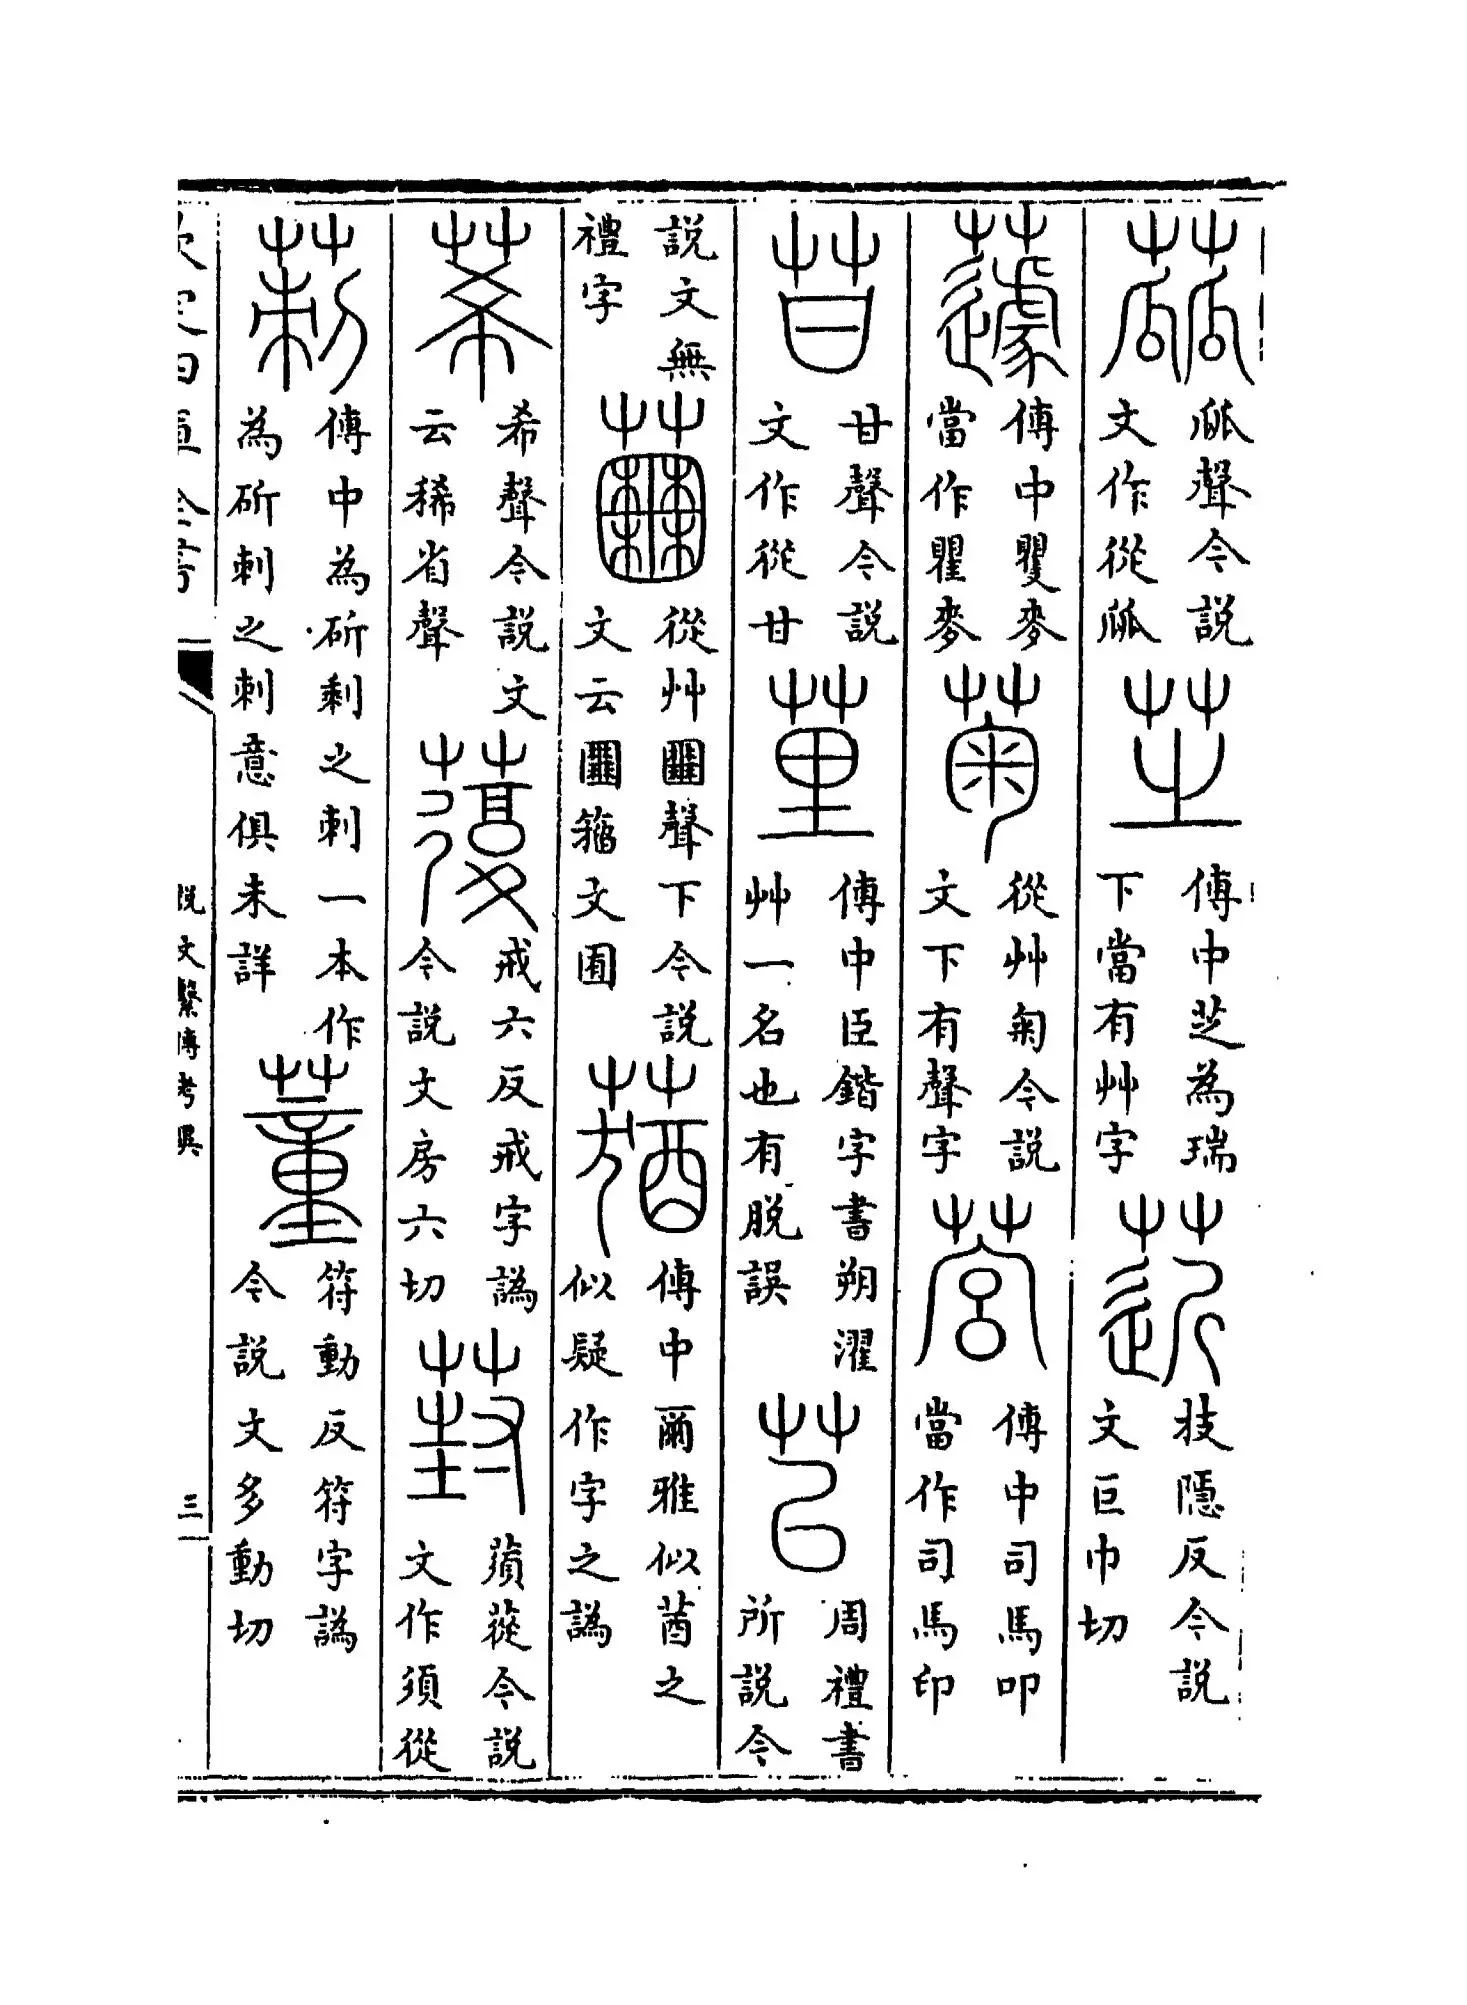 蓏
㼌聲今說
文作從㼌
芝
傳中芝為瑞
下當有艸字
菦
技隱反今說
文巨巾切
蘧
傳中矍麥
當作瞿麥
菊
從艸匊今說
文下有聲字
营
傳中司馬叩
當作司馬印
苷
甘聲今說
文作從甘
荲
傳中臣鍇字書朔濯
艸一名也有脫誤
芑
周禮書
所說今
說文無
禮字
從艸𡈹聲下今說
文云𡈹籀文囿
蕕
傳中爾雅似莤之
似疑作字之譌
莃
希聲今說文
云稀省聲
蕧
戒六反戒字譌
今說文房六切
葑
蕦蓯今說
文作須從
莿
傳中為斫剩之刺一本作
為斫刺之刺意俱未詳
董
符動反符字譌
今說文多動切
欽定四庫全書
說文繫傳考異
三